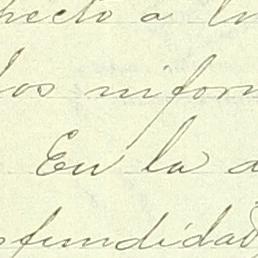 pecto a lo
los inform
En la a
ofundidad